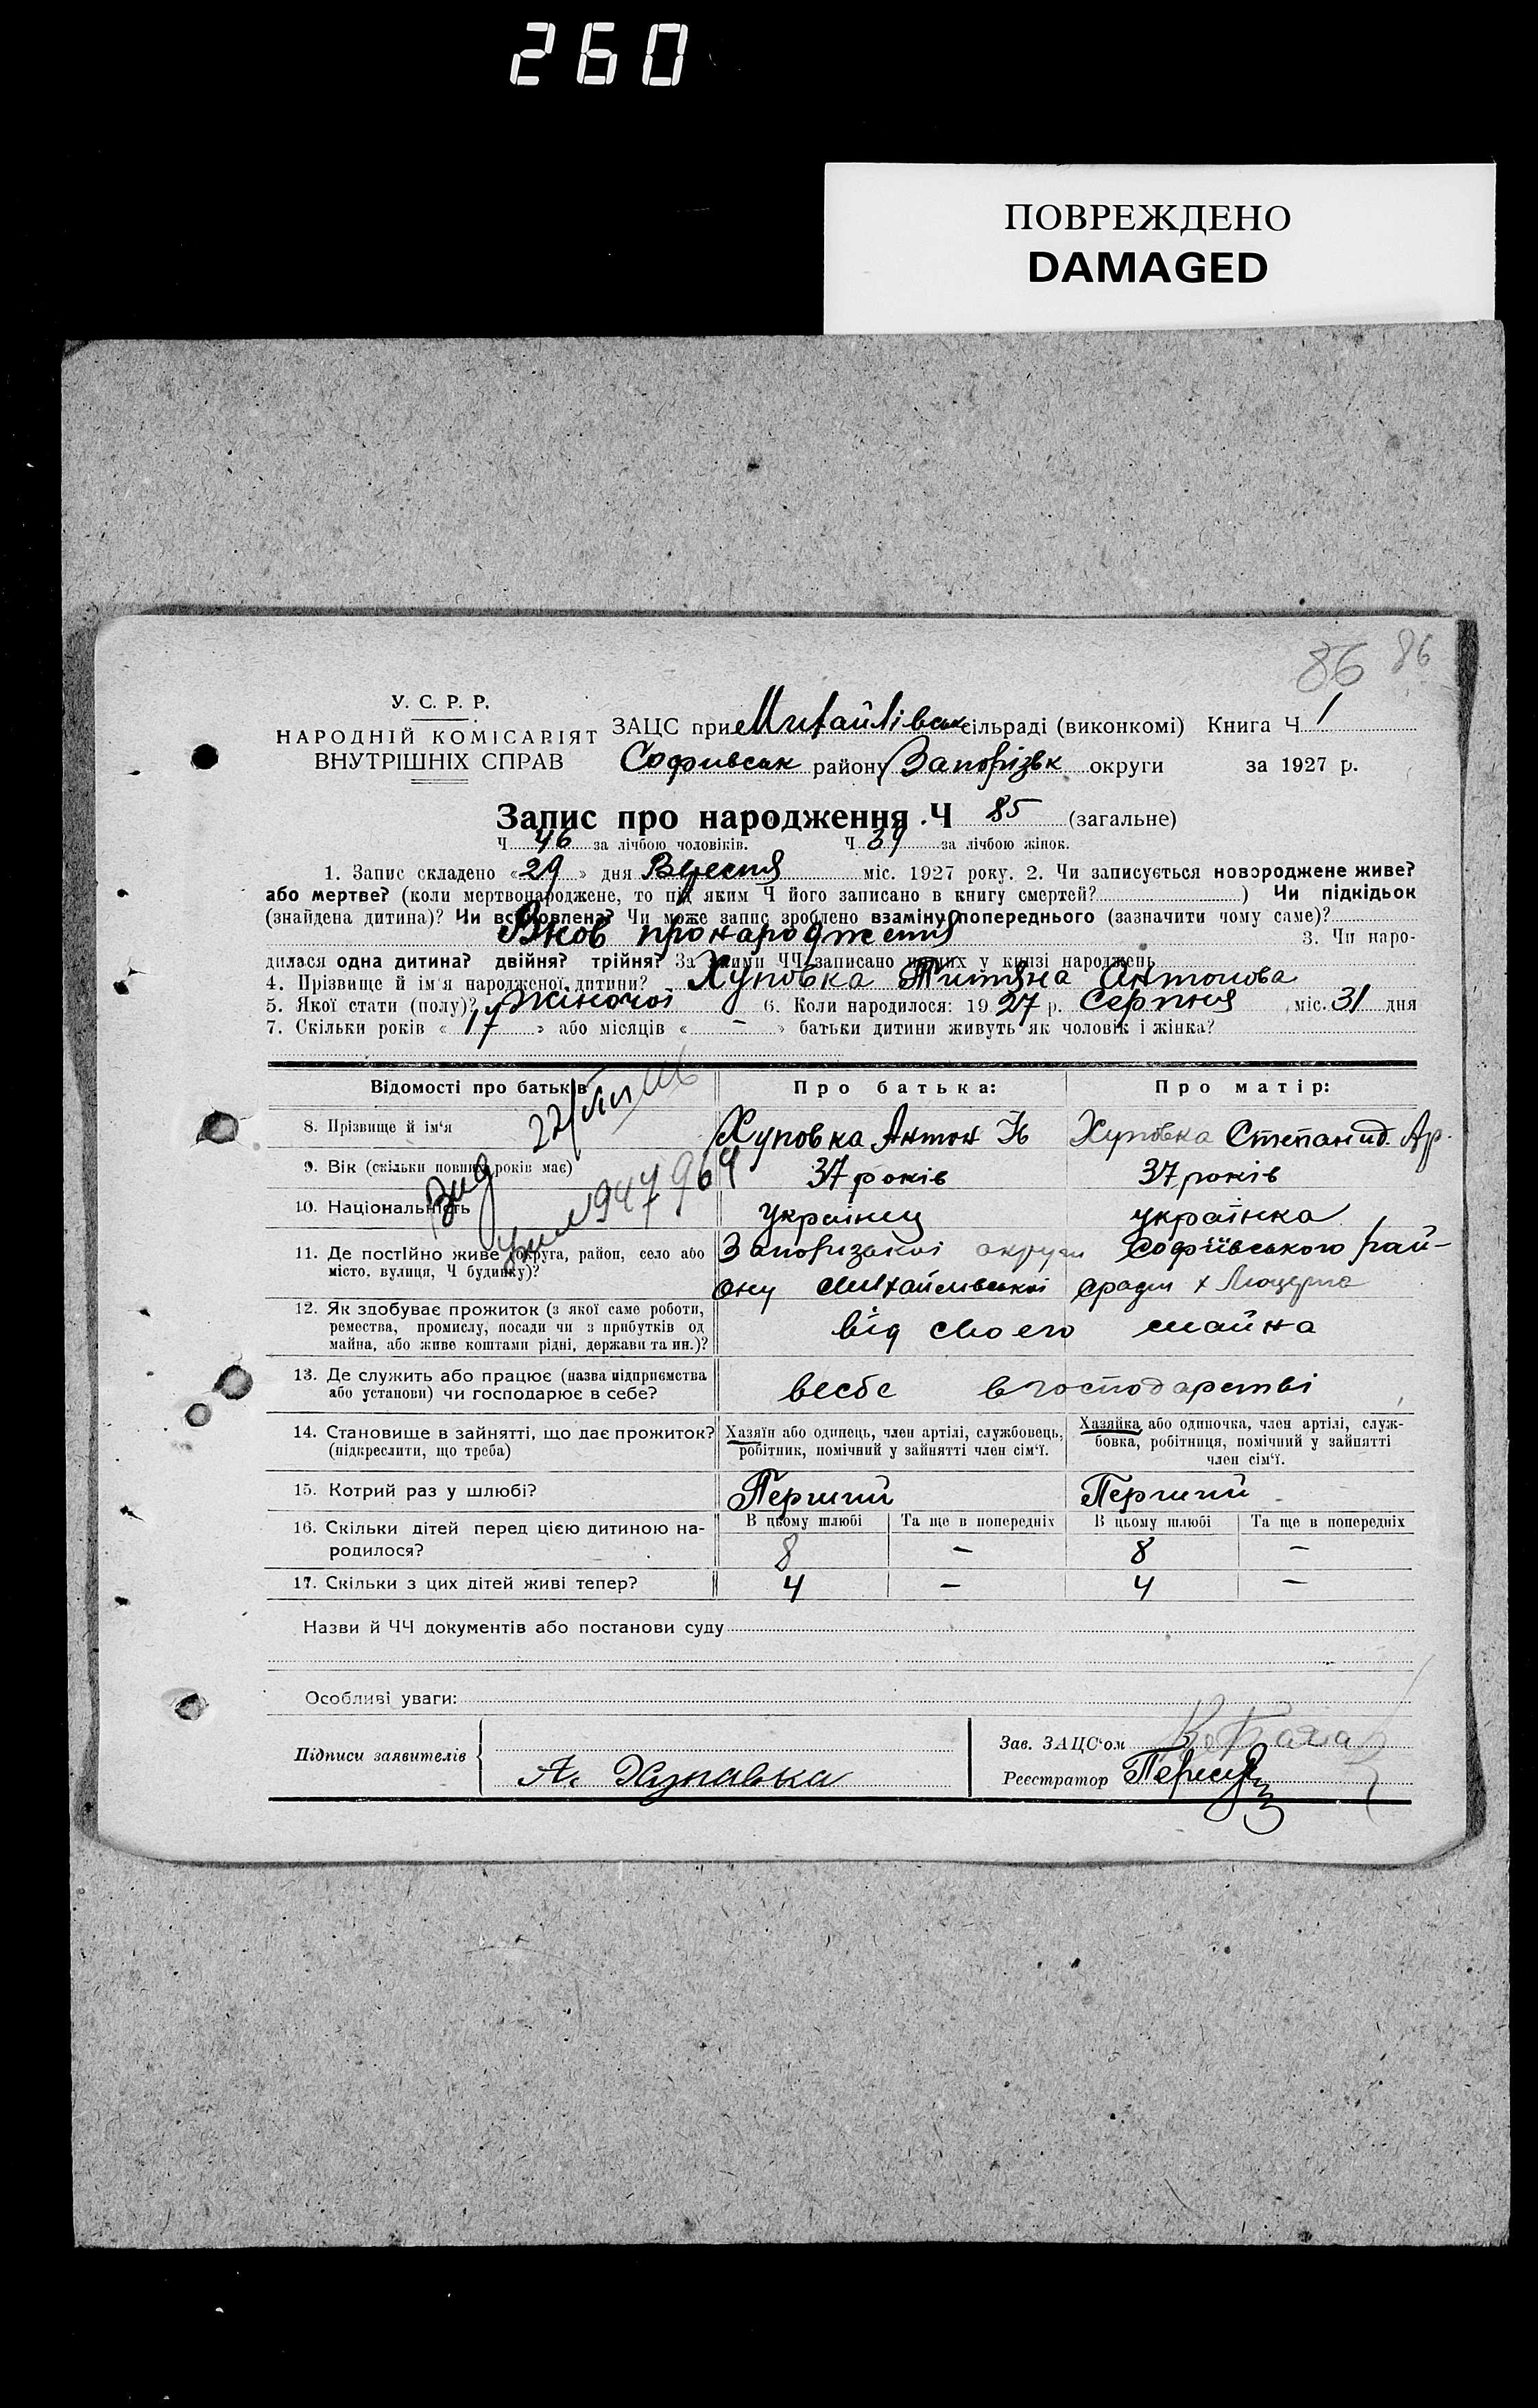 260
ПОВРЕЖДЕНО
DAMAGED
86 86
У. С. Р. Р.
НАРОДНІЙ КОМІСАРІЯТ
ВНУТРІШНІХ СПРАВ
ЗАЦС при Михайлівськ сільраді (виконкомі) Книга Ч 1
Софивськ району Запорізьк округи за 1927 р.
Запис про народження Ч 85 (загальне)
Ч 46 за лічбою чоловіків. Ч 39 за лічбою жінок.
1. Запис складено «29» дня Вересня міс. 1927 року. 2. Чи записується новороджене живе?
або мертве? (коли мертвонароджене, то під яким Ч його записано в книгу смертей? ) Чи підкідьок
(знайдена дитина)? Чи встановлена? Чи може запис зроблено взаміну попереднього (зазначити чому саме)?
про народження 3. Чи наро-
дилася одна дитина? двійня? трійня? За якими ЧЧ записано інших у книзі народжень
4. Прізвище й ім'я народженої дитини? Хуповка Титяна Антонова
5. Якої стати (полу)? жіночої 6. Коли народилося: 1927 р. Серпня міс. 31 дня
7. Скільки років «17» або місяців «-» батьки дитини живуть як чоловік і жінка?
Відомості про батьків
Про батька:
Про матір:
8. Прізвище й ім'я
Хуповка Антон
Хуповка Степанид. Ар.
9. Вік (скільки повних років має)
37 років
37 років
10. Національність
українец
українка
11. Де постійно живе (округа, район, село або
місто, вулиця, Ч будинку)?
Запоризької округи Софіївського рай-
ону Михайлівської сради х Люцерна
12. Як здобуває прожиток (з якої саме роботи,
ремества, промислу, посади чи з прибутків од
майна, або живе коштами рідні, держави та ин.)?
від своего майна
13. Де служить або працює (назва підприємства
або установи) чи господарює в себе?
всебе в господарстві
14. Становище в зайнятті, що дає прожиток?
(підкреслити, що треба)
Хазяїн або одинець, член артілі, службовець,
робітник, помічний у зайнятті член сім'ї.
Хазяйка або одиночка, член артілі, служ-
бовка, робітниця, помічний у зайнятті
член сім'ї.
15. Котрий раз у шлюбі?
Перший
Перший
16. Скільки дітей перед цією дитиною на-
родилося?
В цьому шлюбі Та ще в попередніх В цьому шлюбі Та ще в попередніх
8 - 8 -
17. Скільки з цих дітей живі тепер?
4 - 4 -
Назви й ЧЧ документів або постанови суду
Особливі уваги:
Підписи заявителів
А. Хупавка
Зав. ЗАЦС'ом
Реєстратор